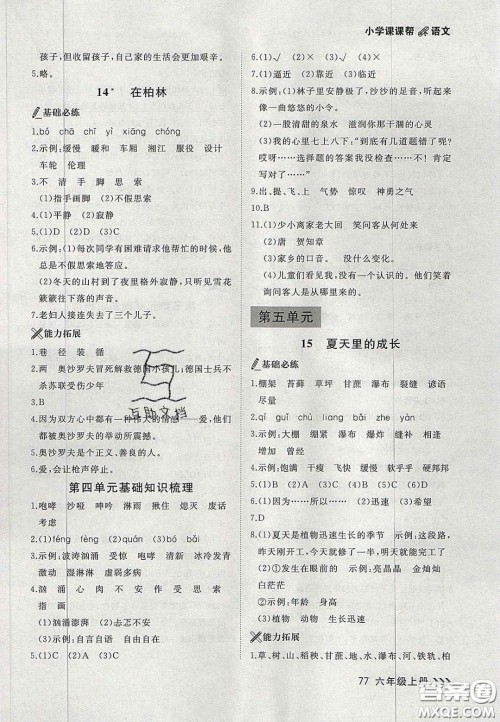 小学课课帮 语文
孩子，但收留孩子，自己家的生活会更加艰辛。
5.略。
14* 在柏林
基础必练
1.bó chā chǐ yí xiāng chóng
2.示例:缓慢 暖和 车厢 湘江 服役 设计
车轮 伦理
3.不 清 手 脚 思 索
(1)指手画脚 (2)不假思索
4.(1)平静 (2)寂静
5.(1)C (2)D (3)A
6.示例:(1)每次同学有困难请求他帮忙的时候，他
总是不假思索地答应。
(2)冬天的山村到了夜里格外寂静，只听见雪花
簌簌往下落的声音。
7.老妇人接连失去了三个儿子。
能力拓展
1.巷 径 装 循
2.两 奥沙罗夫冒死解救德国小孩儿;德国士兵不
杀苏联受伤少年
3.B
4.因为双方心中都有一种伟大的情感——爱，他
们都被奥沙罗夫的举动所震撼。
5.奥沙罗夫是个正义、善良的人。
6.爱，会让枪声停止。
第四单元基础知识梳理
1.咆哮 沙哑 呻吟 淋漓 揪出 熄灭 废话
考虑
2.(1)féng fèng (2)bāo báo bó
3.示例:波涛汹涌 受惊 咆哮 清新 冰冷发青
激动 湿淋淋 虚弱多病
4.汹 涌 心 肉 不 安 作 受 思 索
指 画
(1)汹涌澎湃 (2)忐忑不安
(3)示例:自言自语 自由自在
5.(1)C (2)A (3)D (4)B
6.(1)√ (2)√ (3)× (4)×
7.(1)逼近 (2)靠近 (3)临近
8.(1)示例:林子里安静极了，沙沙的足音，听起来像
一曲悠悠的小令。
(2)一股清甜的泉水 滋润你那干渴的心灵
(3)我的心里七上八下:“到底有几道题错了呢?
哎呀……选择题的答案我没检查……不会都写
错了吧……”
9.出、提、飞、上 气势 惊叹 神勇之气
10.B
11.(1)少小离家老大回 笑问客从何处来
(2)唐 贺知章
(3)家乡的口音。 没什么变化。
(4)儿童们看见我，没有一个认识的。他们笑着
询问客人是从哪里来的。
第五单元
15 夏天里的成长
基础必练
1.棚架 苔藓 草坪 甘蔗 瀑布 裂缝 谚语
尽量
2.qī guī chǔ liàng bāi zhe yàn
3.示例:大棚 绷紧 瀑布 爆炸 甘蔗 遮蔽
缝隙 蓬松
4.示例:饱满 干瘦 慢悠悠 气昂昂 硬邦邦
5.(1)D (2)C
6.(1)因为……所以…… (2)迅速 (3)希望
7.(1)夏天是植物迅速生长的季节 示例:这段路，
昨天刚开工，今天就修到了村口，明天再来看，也
许就完工了。
(2)①示例:黄灿灿 亮晶晶 金灿灿
白茫茫
②示例:一人高
(3)植物 动物 生长 生长
能力拓展
1.草、树木、山、石子、瀑布、河、铁轨、柏
77 六年级上册